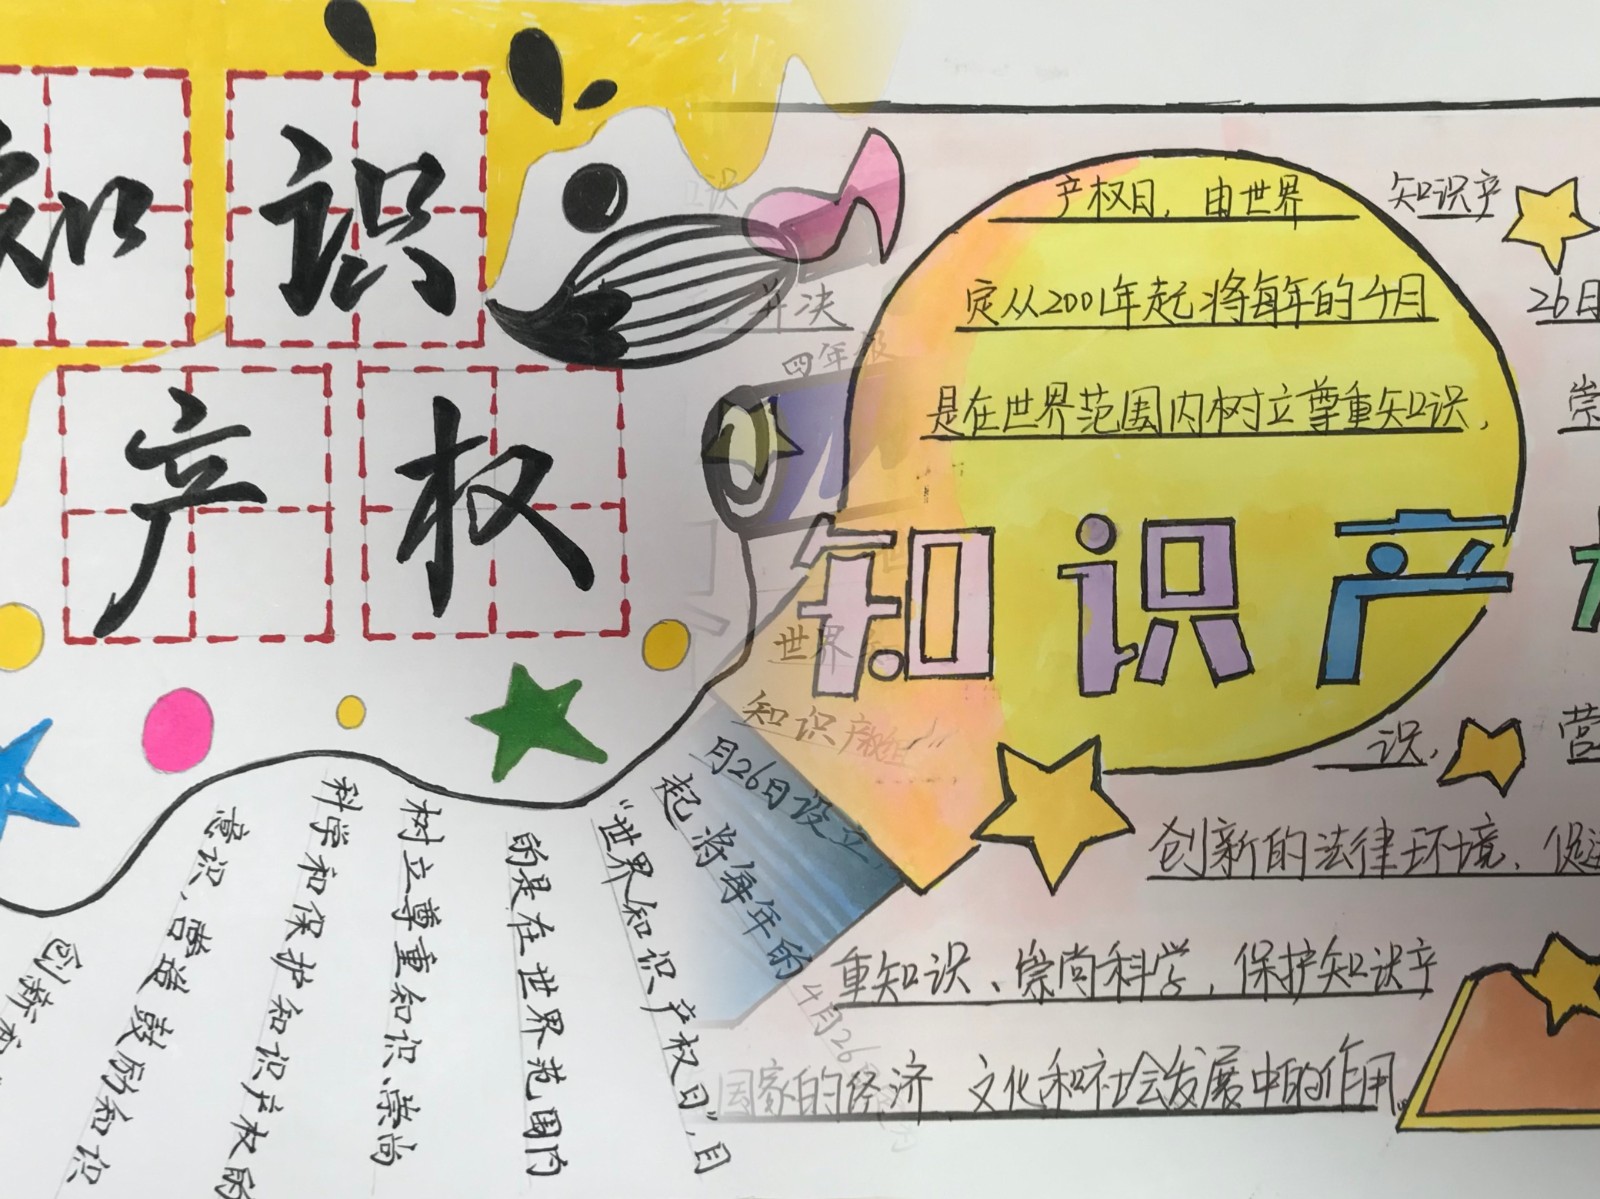 知识
产权
"世界知识产权日",目
的是在世界范围内
树立尊重知识、崇尚
科学和保护知识产权的
意识,营造鼓励和识
创新
四年级
世界
知识产权组
月26日设立,
起将每年的
4月26
并决
产权日,由世界
知识产
定从2001年起将每年的4月
26日
是在世界范围内树立尊重知识,
崇
知识产
识,
营
创新的法律环境,促进
重知识、崇尚科学,保护知识产
国家的经济 文化和社会发展中的作用。